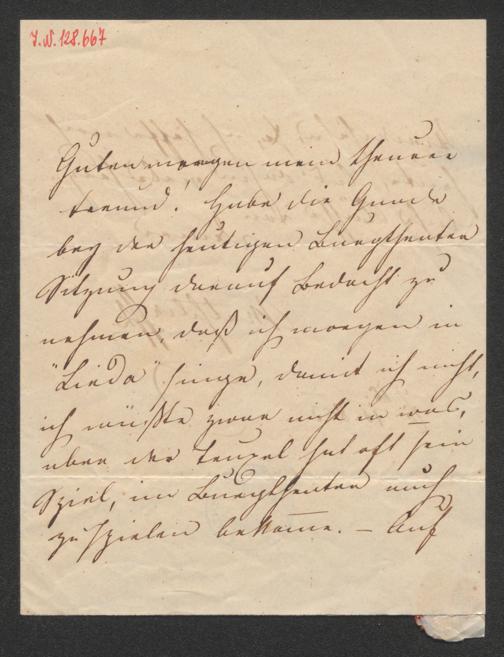 J.N. 128.667
Guten morgen mein theurer
Freund. Habe die Gnade
bey der heutigen Burgtheater
Sitzung darauf Bedacht zu
nehmen daß ich morgen in
"Linda" singe, damit ich nicht,
ich wüßte zwar nicht in was,
aber der Teufel hat oft sein
Spiel, im Burgtheater auch
zu spielen bekomme. – Auf